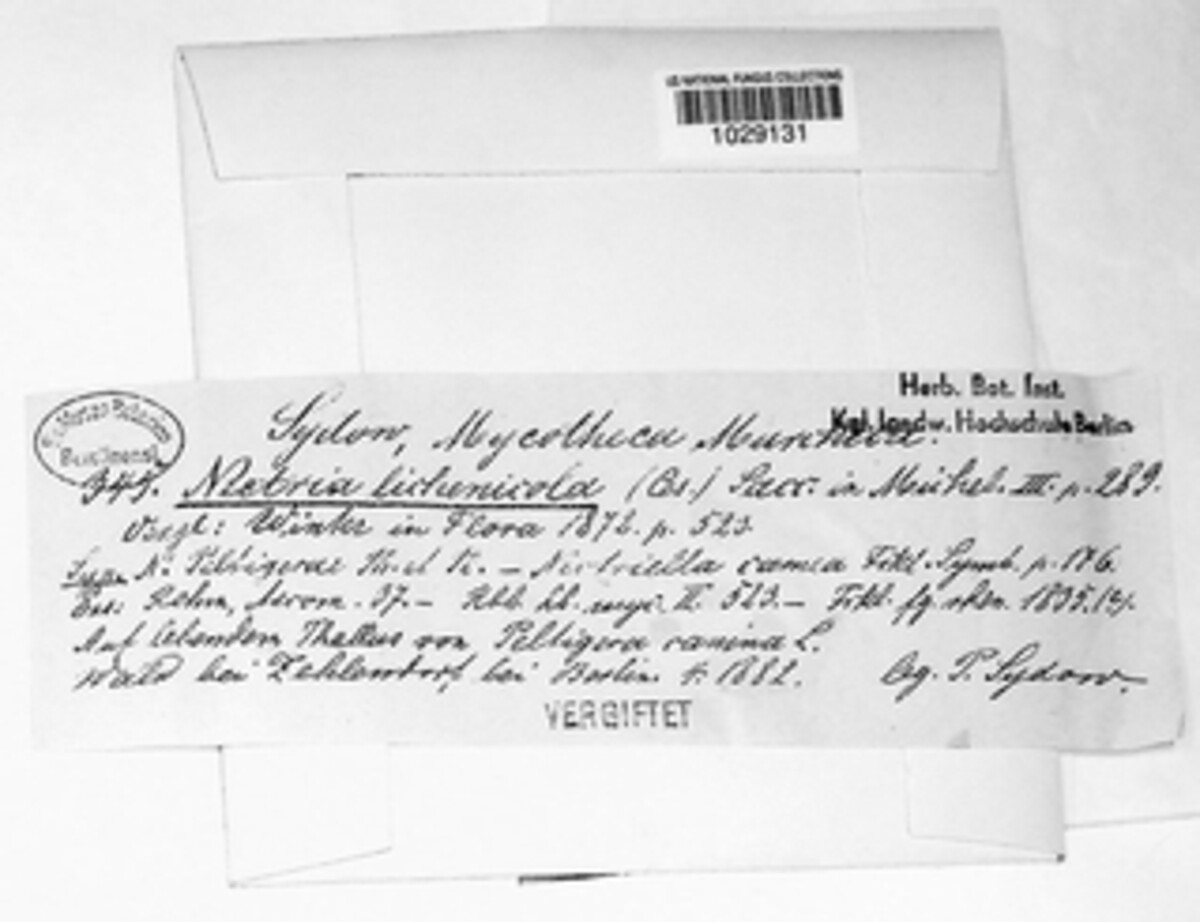 US NATIONAL FUNGUS COLLECTIONS
1029131
Herb. Bot. Inst.
Kgl. landw. Hochschule Berlin
Sydow, Mycotheca Marchica.
345. Nectria lichenicola (Ces.) Sacc. in Michel. III. p. 289.
Vergl: Winter in Flora 1872. p. 523.
Syn. N. Peltigerae — Nectriella carnea Fckl. Symb. p. 176.
Exs: Rehm, Ascom. 37. — Rbh. II. 523. — Fckl. fg. rhen. 1835.
Auf lebendem Thallus von Peltigera canina L.
Wald bei Zehlendorf bei Berlin. 1882. lg. P. Sydow.
VERGIFTET